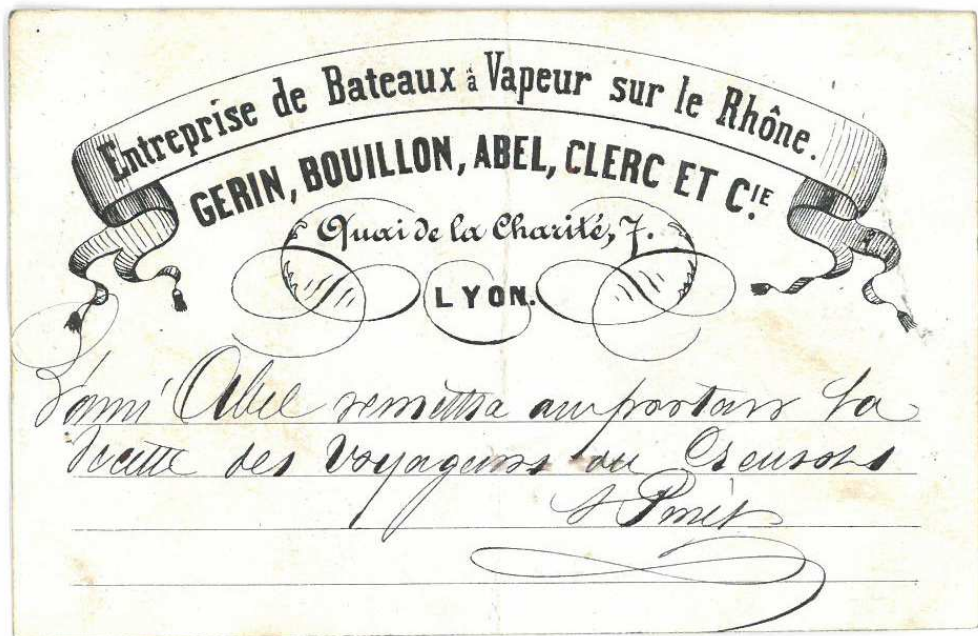 Entreprise de Bateaux à Vapeur sur le Rhône.
GERIN, BOUILLON, ABEL, CLERC ET C.IE
Quai de la Charité, 7.
LYON.
L'ami Abel remettra au porteur la
recette des voyageurs du Creusot